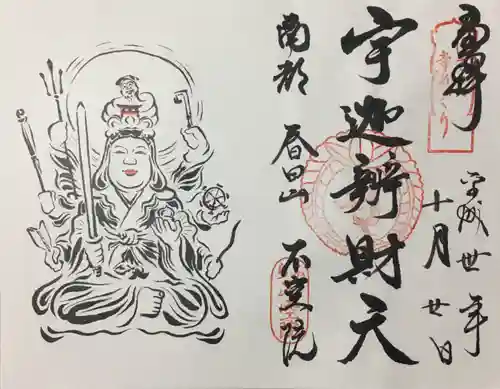 奉拝
平成廿年
十月廿日
宇迦辨財天
南都 春日山 不空院